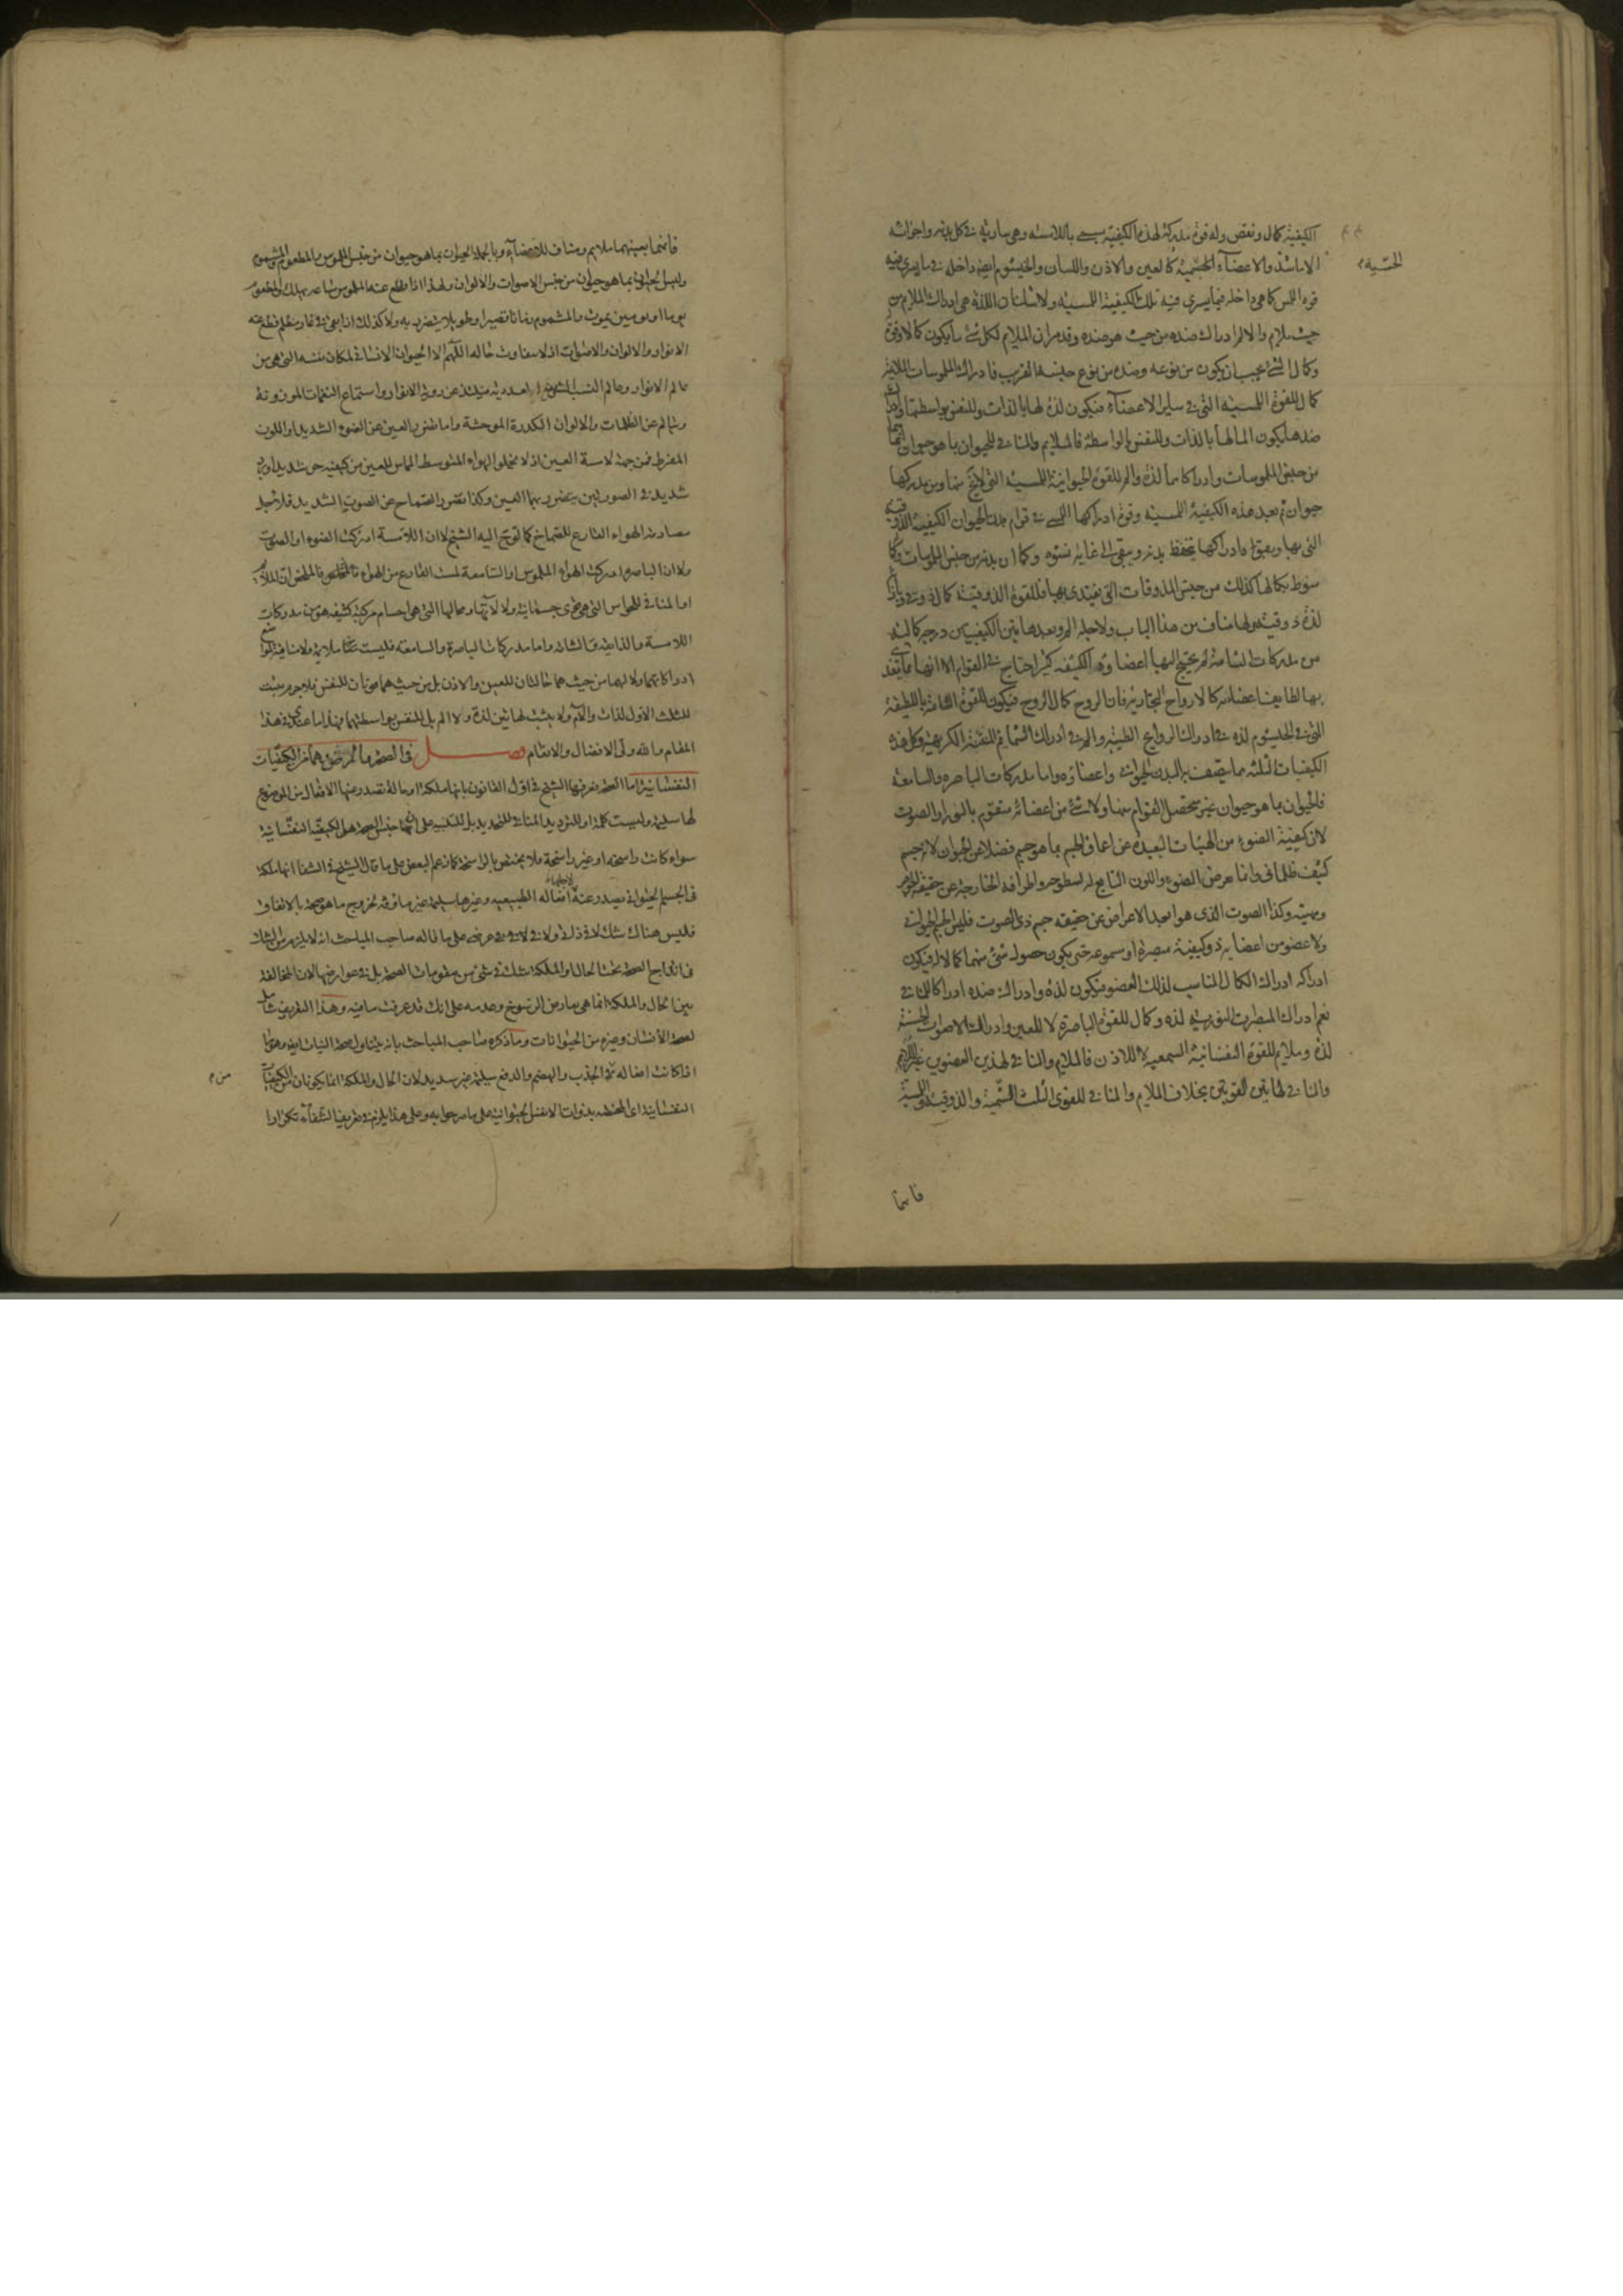 الكيفية كمال ونقص وله قوة مدركة لهذه الكيفية يسمى باللامسه وهى سارية فى كل بدنه واجزائه
الا ماشذ والاعضآء الجسمية كالعين والاذن واللسان والخيشوم ايضا داخلة فى ما يسرى فيه
الحسّية
قوة اللمس كما هى داخلة فيما يسرى فيه تلك الكيفية اللمسية ولا شك ان اللذة هى ادراك الملايم من
حيث ملايم والالم ادراك ضده من حيث هو ضده وقد مر ان الملايم لكل شئ ما يكون كمالا وقوة
وكمال الشئ يجب ان يكون من نوعه وضده من نوع جنسه القريب فادراك الملموسات اللاينة
كمال للقوة اللمسية التى فى ساير الاعضآء فيكون لذة لها بالذات وللنفس بواسطتها وادراك
ضدها يكون الما لها بالذات وللنفس بالواسطة فالملايم والمنافى للحيوان بما هو حيوان انما
من جنس الملموسات وادراكاتها لذة والم للقوة الحيوانية اللمسية التى لا يخ منها ومن مدركها
حيوان ثم بعد هذه الكيفية اللمسية وقوة ادراكها اللمسى فى قوام بدن الحيوان الكيفية الذوقية
التى بها وبقوة ادراكها يتحفظ بدنه ويبقى الى غاية نشوه وكما ان بدنه من جنس الملموسات وكما
منوط بكمالها كذلك من جنس المذوقات التى يغتذى بها فللقوة الذوقية كمال ذوقى
لذة ذوقية ولها مناف من هذا الباب ولاجله الم وبعد هاتين الكيفيتين درجة كمالية
من مدركات الشامة لم يحتج اليها اعضاؤه الكثيفه كثير احتياج فى القوام الا انها مما يتغذى
بها لطايف اعضائه كالارواح البخارية فان الروح كمال الروح فيكون للقوة الشامة اللطيفة
التى فى الخيشوم لذة فى ادراك الروايح الطيبة والم فى ادراك الشمايم النتنة الكريهة وكل هذه
الكيفيات الثلثه مما يتصف به البدن الحيوانى واعضاؤه واما مدركات الباصره والسامعة
فالحيوان بما هو حيوان غير متحصل القوام منها ولا شئ من اعضائه متقوم بالنور او الصوت
لان كيفية الضوء من الهيئات البعيدة عن اعماق الجسم بما هو جسم فضلا عن الحيوان لانه جسم
كثيف ظلمانى وانما يعرض الضوء واللون التابع له لسطوحه واطرافه الخارجة عن حقيقة الجرم
ومهيته وكذا الصوت الذى هو ابعد الاعراض عن حقيقه جسم ذى الصوت فليس الجسم الحيوانى
ولا عضو من اعضايه ذو كيفية مبصرة او مسموعه حتى يكون حصول شئ منهما كمالا له فيكون
ادراكه ادراك الكمال المناسب لذلك العضو فيكون لذة وادراك ضده ادراكا للمنافى
نعم ادراك المبصرات النورية لذة وكمال للقوة الباصرة لا للعين وادراك الاصوات الحسنة
لذة وملايم للقوة النفسانية السمعية لا للاذن فالملايم والمنافى لهذين العضوين غير الملايم
والمنافى لهاتين القوتين بخلاف الملايم والمنافى للقوى الثلث الشمية والذوقية واللمسية
فانها
فانهما بعينهما ملايم ومناف للاعضآء وبالجملة الحيوان بما هو حيوان من جنس الملموس والمطعوم والمشموم
وليس الحيوان بما هو حيوان من جنس الاصوات والالوان ولهذا اذا انقطع عنه الملموس ساعه يهلك والمطعوم
يوما او يومين يموت والمشموم زمانا قصيرا وطويلا يتضرر به ولا كذلك اذا بقى فى غار مظلم قطع عنه
الانوار والالوان والاصوات اذ لا يتفاوت حاله اللهم الا الحيوان الانسانى لمكان نفسه التى هى من
عالم الانوار وعالم النسب الشريفة عن روية الانوار واستماع النغمات الموزونة
ويتالم عن الظلمات والالوان الكدرة الموحشة واما تضرر العين عن الضوء الشديد او اللون
المفرط فمن جهة لامسة العين اذ لا يخلوا الهواء المتوسط الماس للعين من كيفيه حر شديد او برد
شديد فى الصورتين يتضرر بهما العين وكذا تضرر الصماخ عن الصوت الشديد فلاجل
مصادمة الهواء القارع للصماخ كما توجه اليه الشيخ لا ان اللامسة ادركت الضوء او الصوت
ولا ان الباصرة ادركت الهواء الملموس او السامعة لمست القارع من الهواء
او المنافى للحواس التى هى قوى جسمانية ولا لآلاتها ومحالها التى هى اجسام مركبة كثيفه هو من مدركات
اللامسة والذايقة والشامة واما مدركات الباصرة والسامعة فليست مما ملايمة ولا منافية
ادراكاتهما ولا لهما من حيث هما حالتان للعين والاذن بل من حيث هما قوتان للنفس فلاجرم يثبت
للثلث الاول لذات والآم ولا يثبت لهاتين لذة ولا الم بل للنفس بواسطتهما فهذا ما عندى فى هذا
المقام والله ولى الافضال والانعام فصل فى الصحة والمرض وهما من الكيفيات
النفسانية اما الصحة فعرفها الشيخ فى اول القانون بانها ملكة او حالة تصدر عنها الافعال من الموضوع
لها سليمة وليست كلمة او للترديد المنافى للتحديد بل للتنبيه على ان جنس الصحة هى الكيفية النفسانية
سواء كانت راسخة او غير راسخة ولا يختص بالراسخة كما زعم البعض على ما قال الشيخ فى الشفا انها ملكة
فى الجسم الحيوانى يصدر عنه لاجلها افعاله الطبيعيه وغيرها سليمة غير ماوفة لخروج ما هو صحة بالاتفاق
فليس هناك شك لا فى ذاتى ولا فى عرضى على ما قاله صاحب المباحث انه لا يلزم من الشك
فى اندراج الصحة تحت الحال او الملكة شك فى شئ من مقومات الصحة بل فى عوارضها لان المخالفة
بين الحال والملكة انما هى بعارض الرسوخ وعدمه على انك قد عرفت ما فيه وهذا التعريف شامل
لصحة الانسان وغيره من الحيوانات وما ذكره صاحب المباحث بانه يتناول صحة النبات ايضا وهو ما
اذا كانت افعاله فى الجذب والهضم والدفع سليمة غير سديد لان الحال والملكة انما يكونان من الكيفيات
من
النفسانية اى المختصه بذوات الانفس الحيوانية على ما صرحوا به وعلى هذا يلزم فى تعريف الشفآء تكرارا